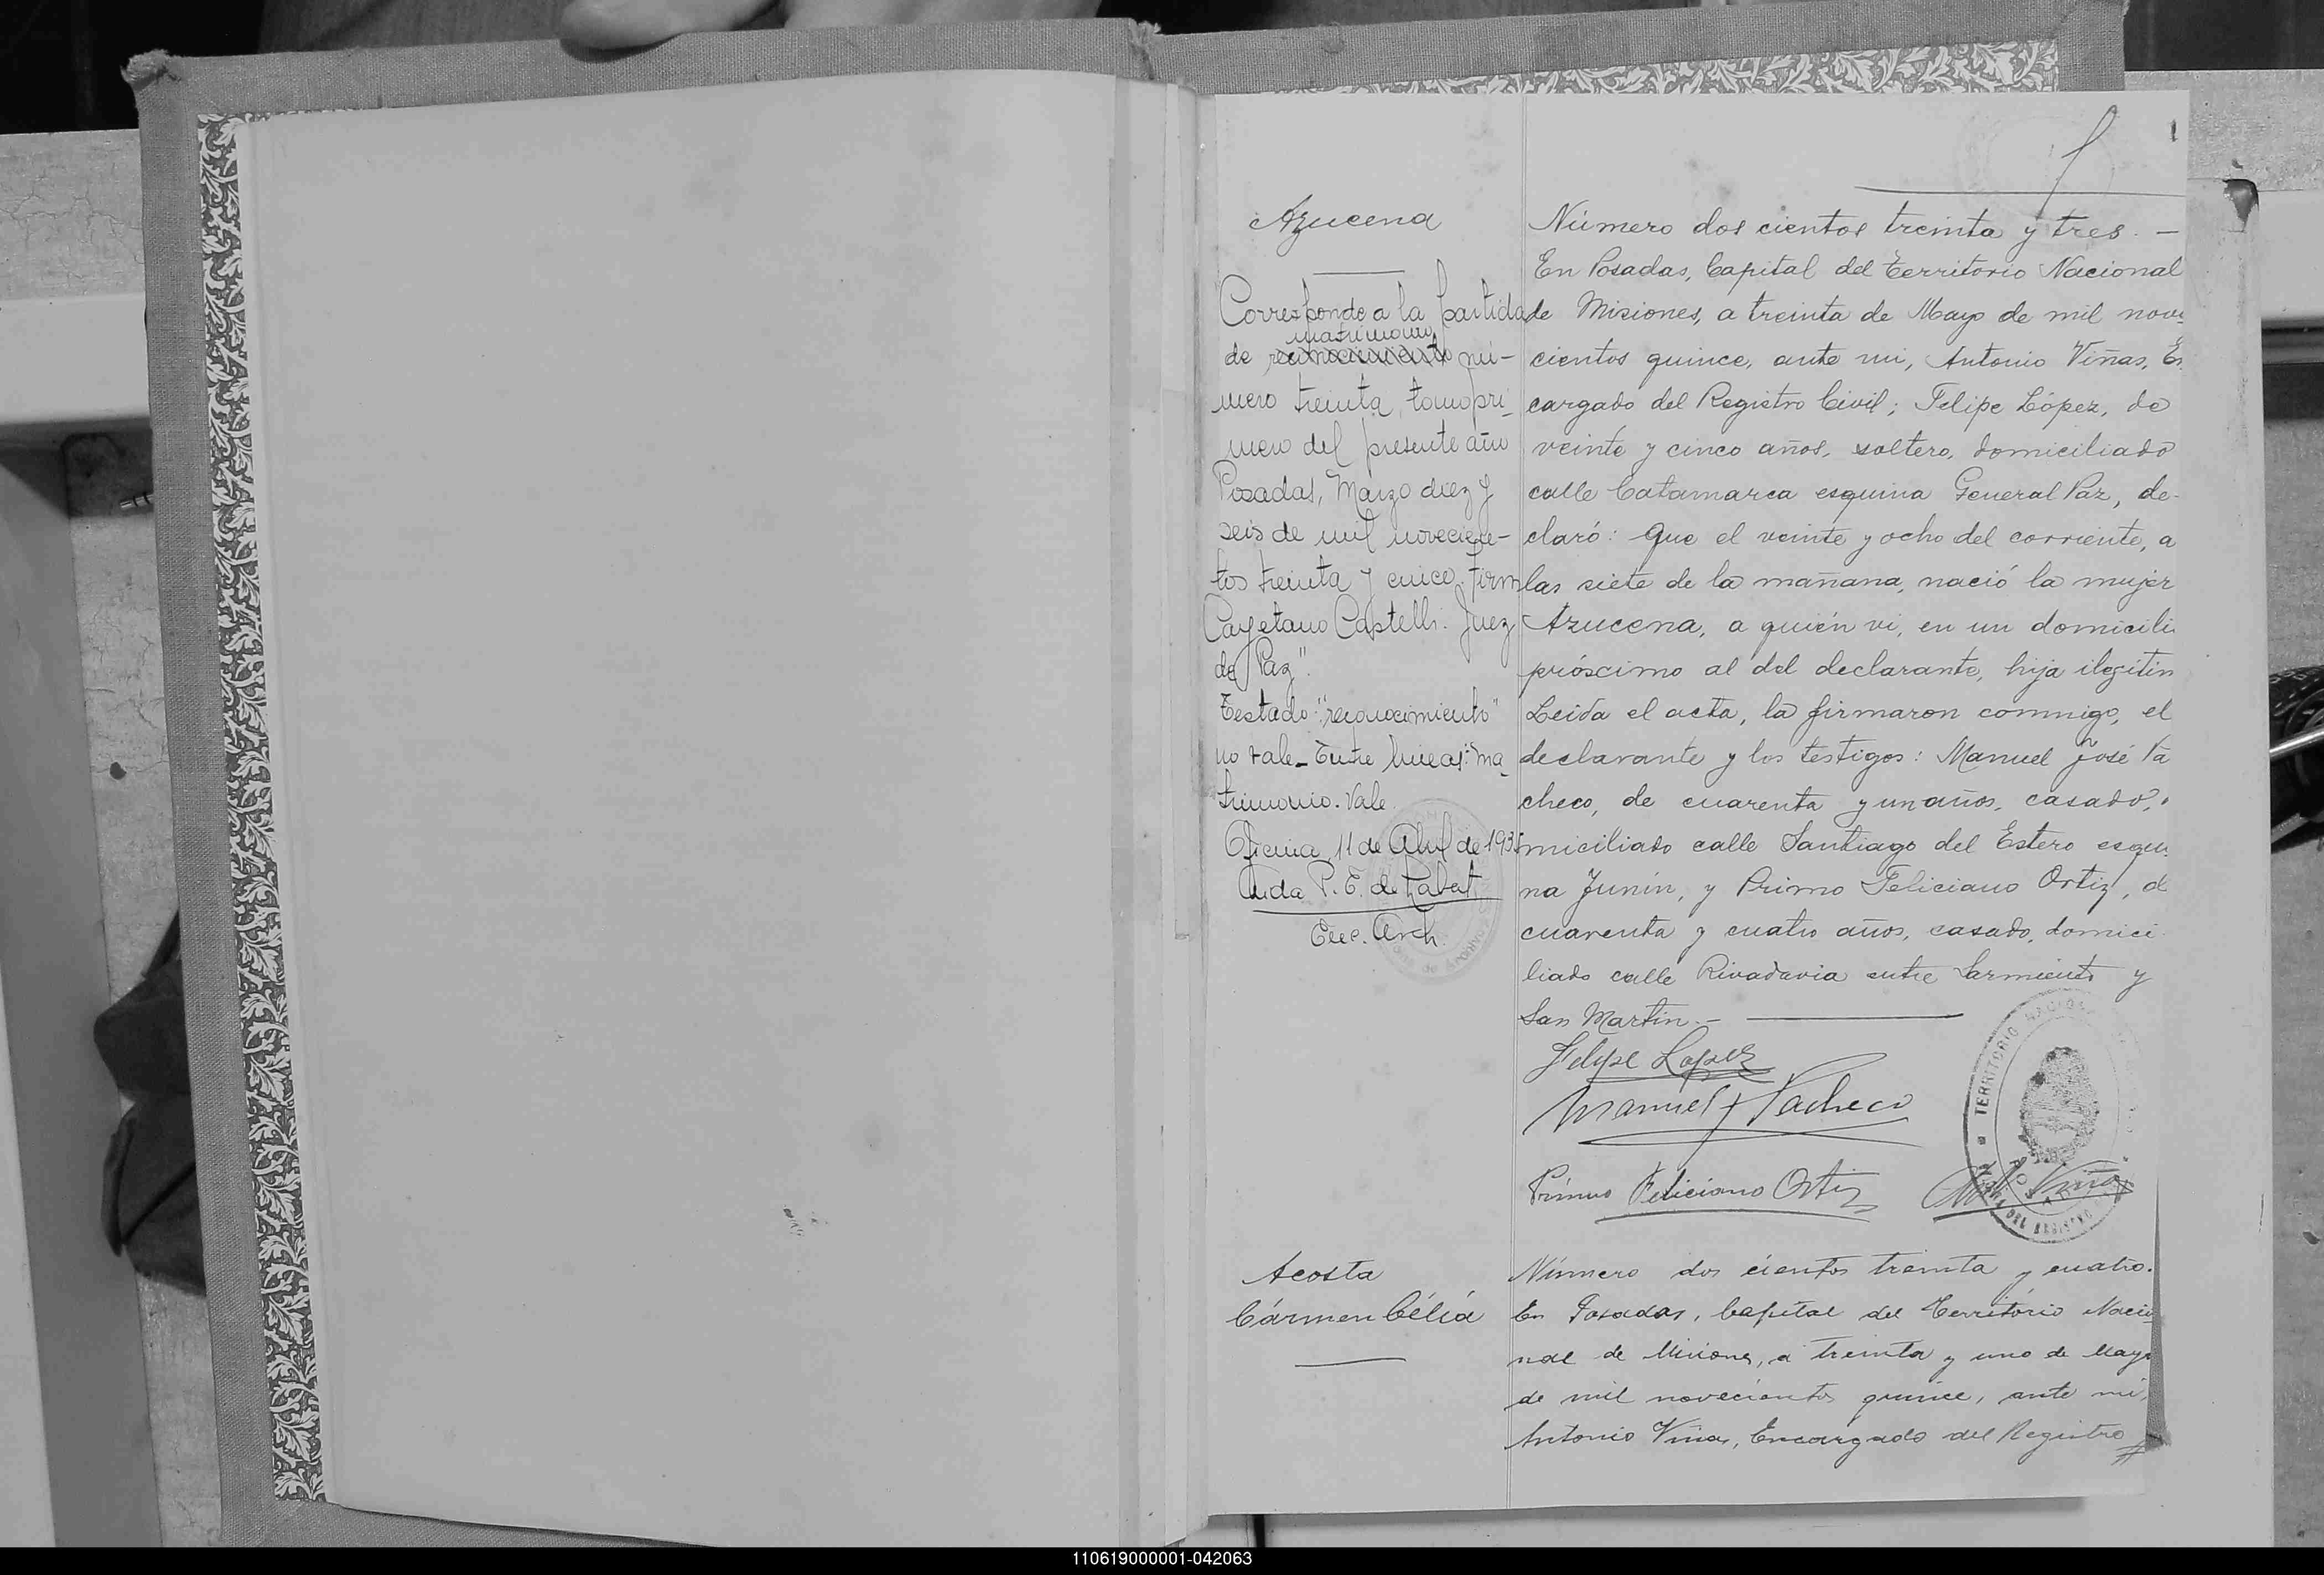 1
Azucena
Corresponde a la partida
matrimonio
de reconocimiento nú-
mero treinta, tomo pri-
mero del presente año
Posadas, Marzo diez y
seis de mil novecien-
tos treinta y cinco. Firm
Cayetano Castelli. Juez
de Paz".
Testado: "reconocimiento"
no vale_ Entre líneas: "ma_
trimonio. Vale.
Oficina, 11 de Abril de 1935
Aida P. E. de
Enc. Arch.
Número dos cientos treinta y tres. —
En Posadas, Capital del Territorio Nacional
de Misiones, a treinta de Mayo de mil nove
cientos quince, ante mi, Antonio Viñas, En
cargado del Registro Civil; Felipe López, de
veinte y cinco años, soltero, domiciliado
calle Catamarca esquina General Paz, de-
claró: Que el veinte y ocho del corriente, a
las siete de la mañana, nació la mujer
Azucena, a quién vi, en un domicili
próscimo al del declarante, hija ilegítim
Leida el acta, la firmaron conmigo, el
declarante y los testigos: Manuel José Pa
checo, de cuarenta y un años, casado,
miciliado calle Santiago del Estero esqui
na Junín, y Primo Feliciano Ortiz, d
cuarenta y cuatro años, casado, domici
liado calle Rivadavia entre Sarmiento y
San Martin.—
Felipe Lopez
Manuel J Pacheco
Primo Feliciano Ortiz
Viñas
TERRITORIO NACIONAL
DEL REGISTRO
Acosta
Cármen Célia
Número dos cientos treinta y cuatro.
En Posadas, Capital del Território Nacio
nal de Misiones, a treinta y uno de Mayo
de mil novecientos quince, ante mi,
Antonio Viñas, Encargado del Registro
110619000001-042063